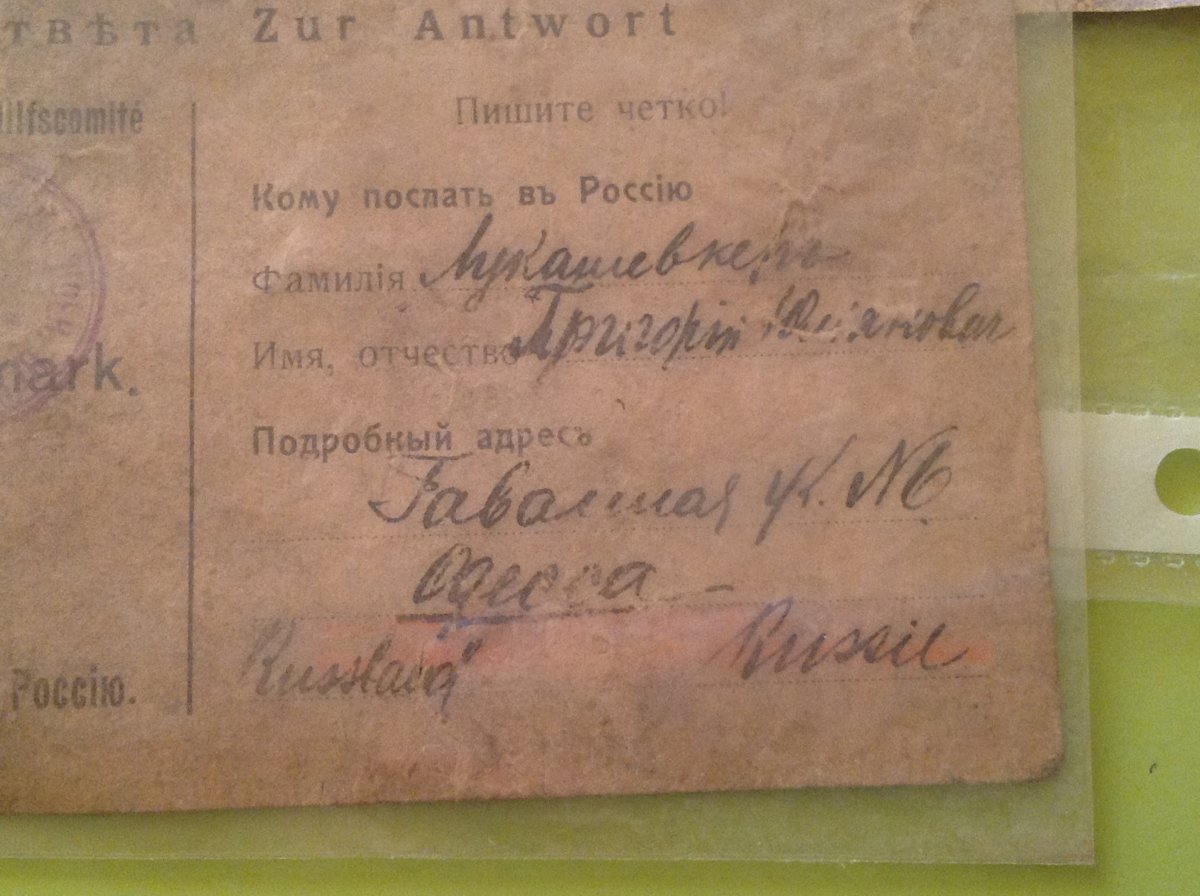 твѣта Zur Antwort
ilfscomité
Пишите четко!
Кому послать въ Россію
Фамилія
Имя, отчество Григорій
mark.
Подробный адресъ
Гаванная
Одесса
Russland Russie
Россію.